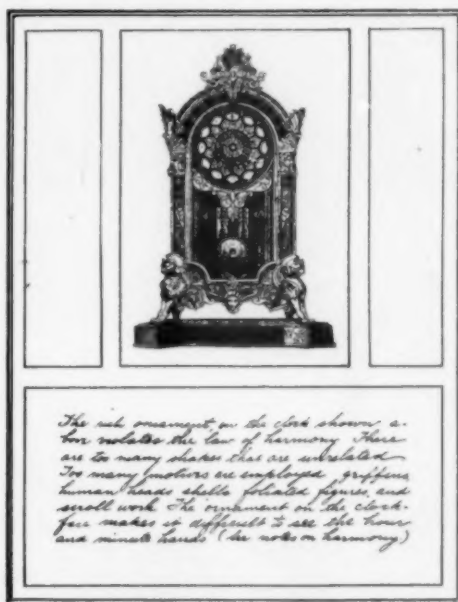 The rich ornament, on the clock shown a-
bove violates the law of harmony There
are too many shapes that are unrelated
Too many motivs are employed griffins
human heads shells foliated figures, and
scroll work The ornament on the clock-
face makes it difficult to see the hour
and minute hands (See notes on harmony)